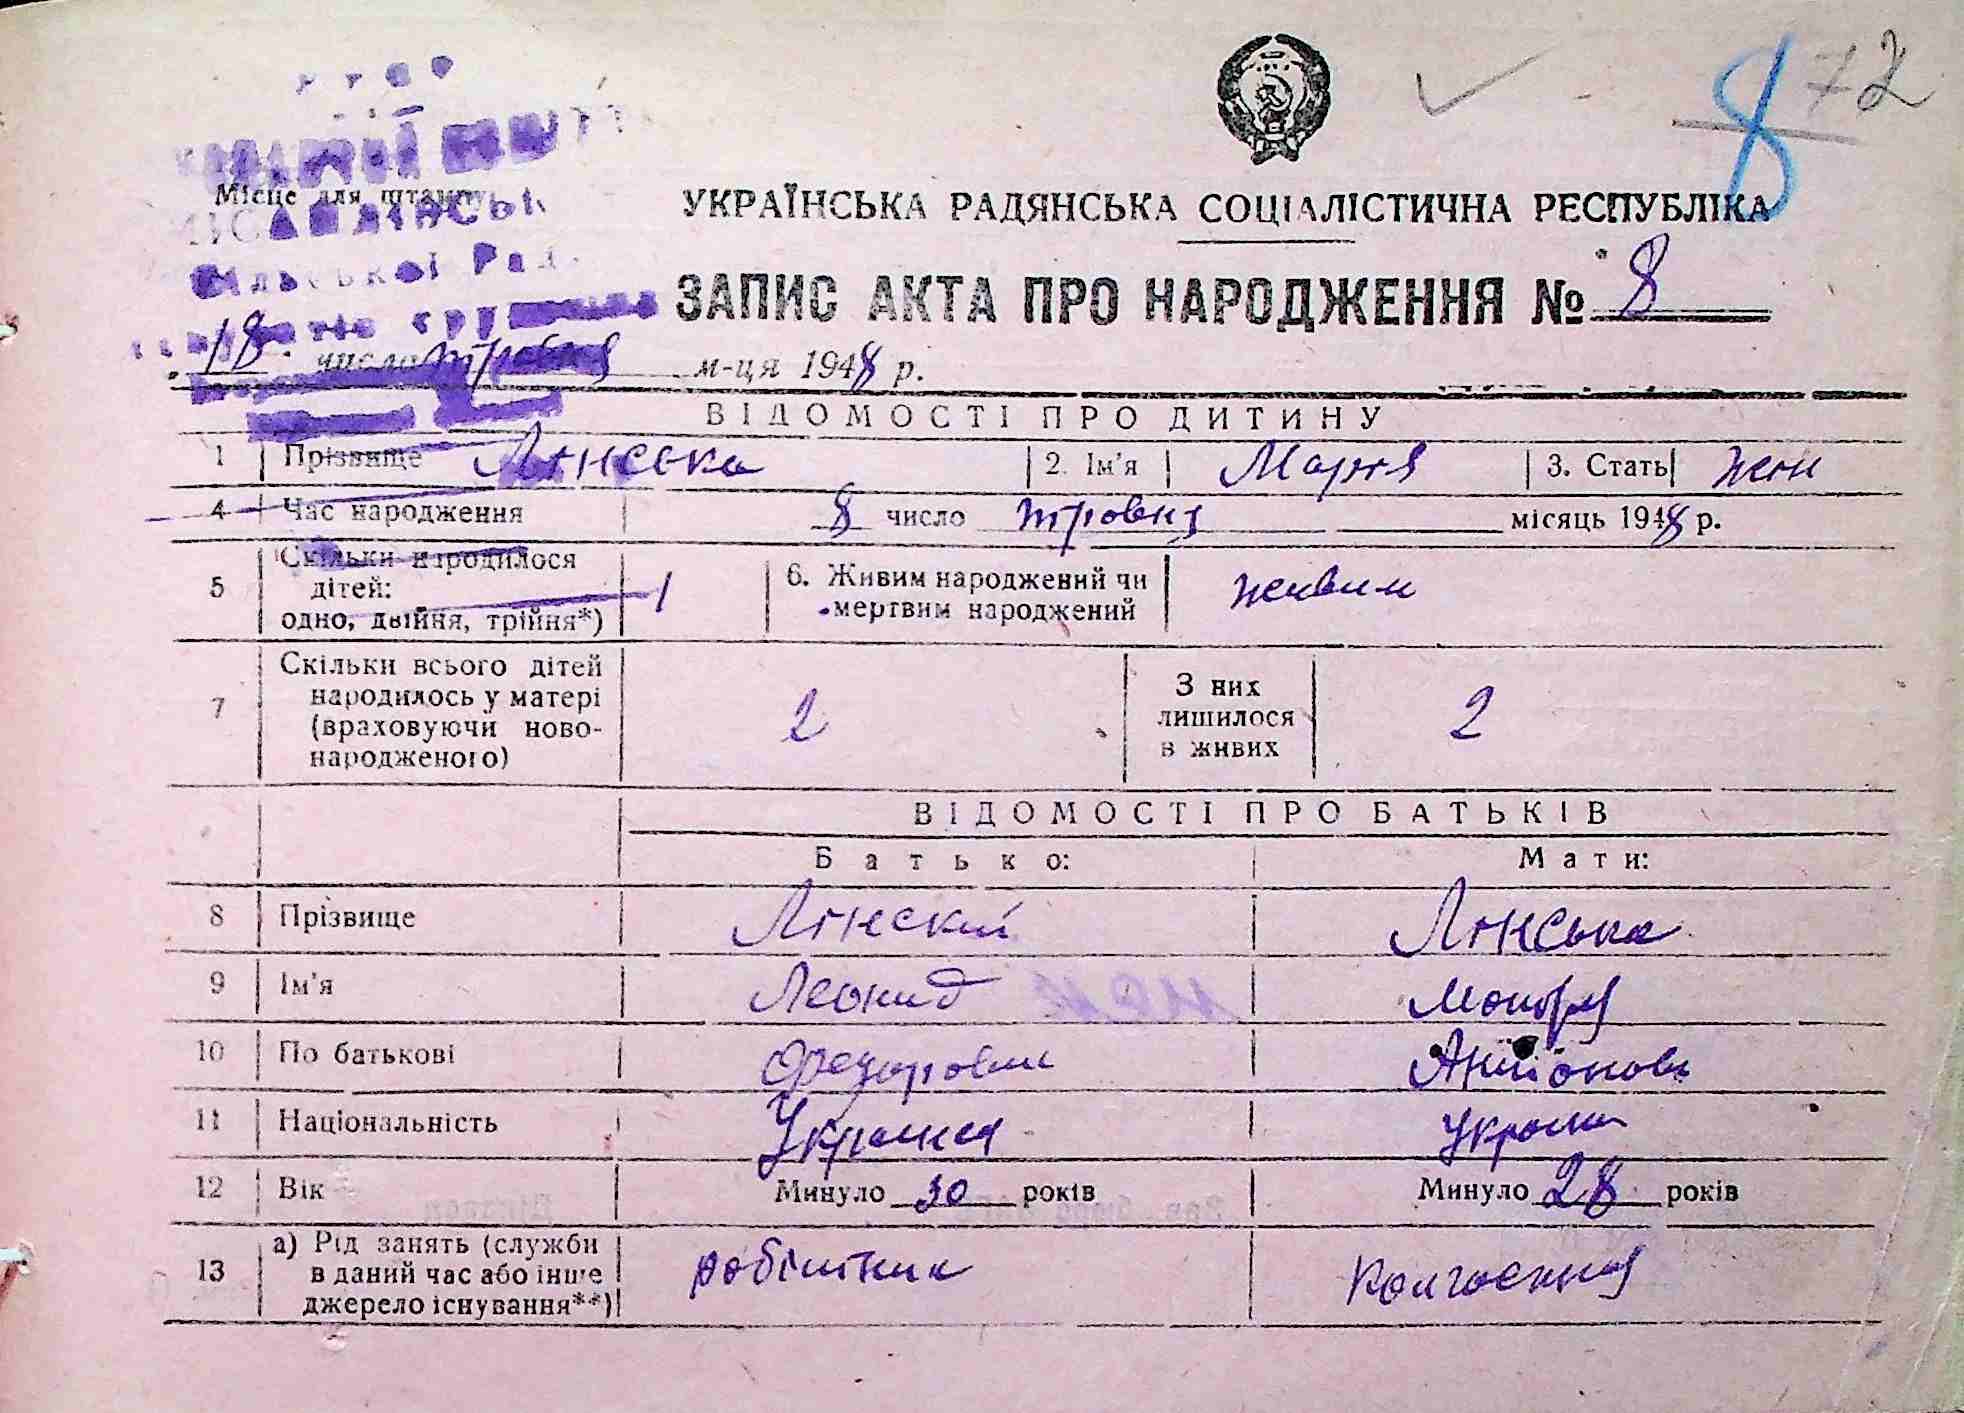 72
8
Місце для штампу
УКРАЇНСЬКА РАДЯНСЬКА СОЦІАЛІСТИЧНА РЕСПУБЛІКА
ЗАПИС АКТА ПРО НАРОДЖЕННЯ № 8
18 число травня м-ця 1948 р.
ВІДОМОСТІ ПРО ДИТИНУ
1 Прізвище Лінська 2. Ім'я Марія 3. Стать жін
4 Час народження 8 число травня місяць 1948 р.
5 Скільки народилося
дітей:
одно, двійня, трійня*) 1
6. Живим народжений чи
мертвим народжений живим
7 Скільки всього дітей
народилось у матері
(враховуючи ново-
народженого) 2
З них
лишилося
в живих 2
ВІДОМОСТІ ПРО БАТЬКІВ
Батько: Мати:
8 Прізвище Лінский Лінська
9 Ім'я Леонид
10 По батькові Федорович
11 Національність
12 Вік Минуло 30 років Минуло 28 років
13 а) Рід занять (служби
в даний час або інше
джерело існування**) робітник колгоспниця